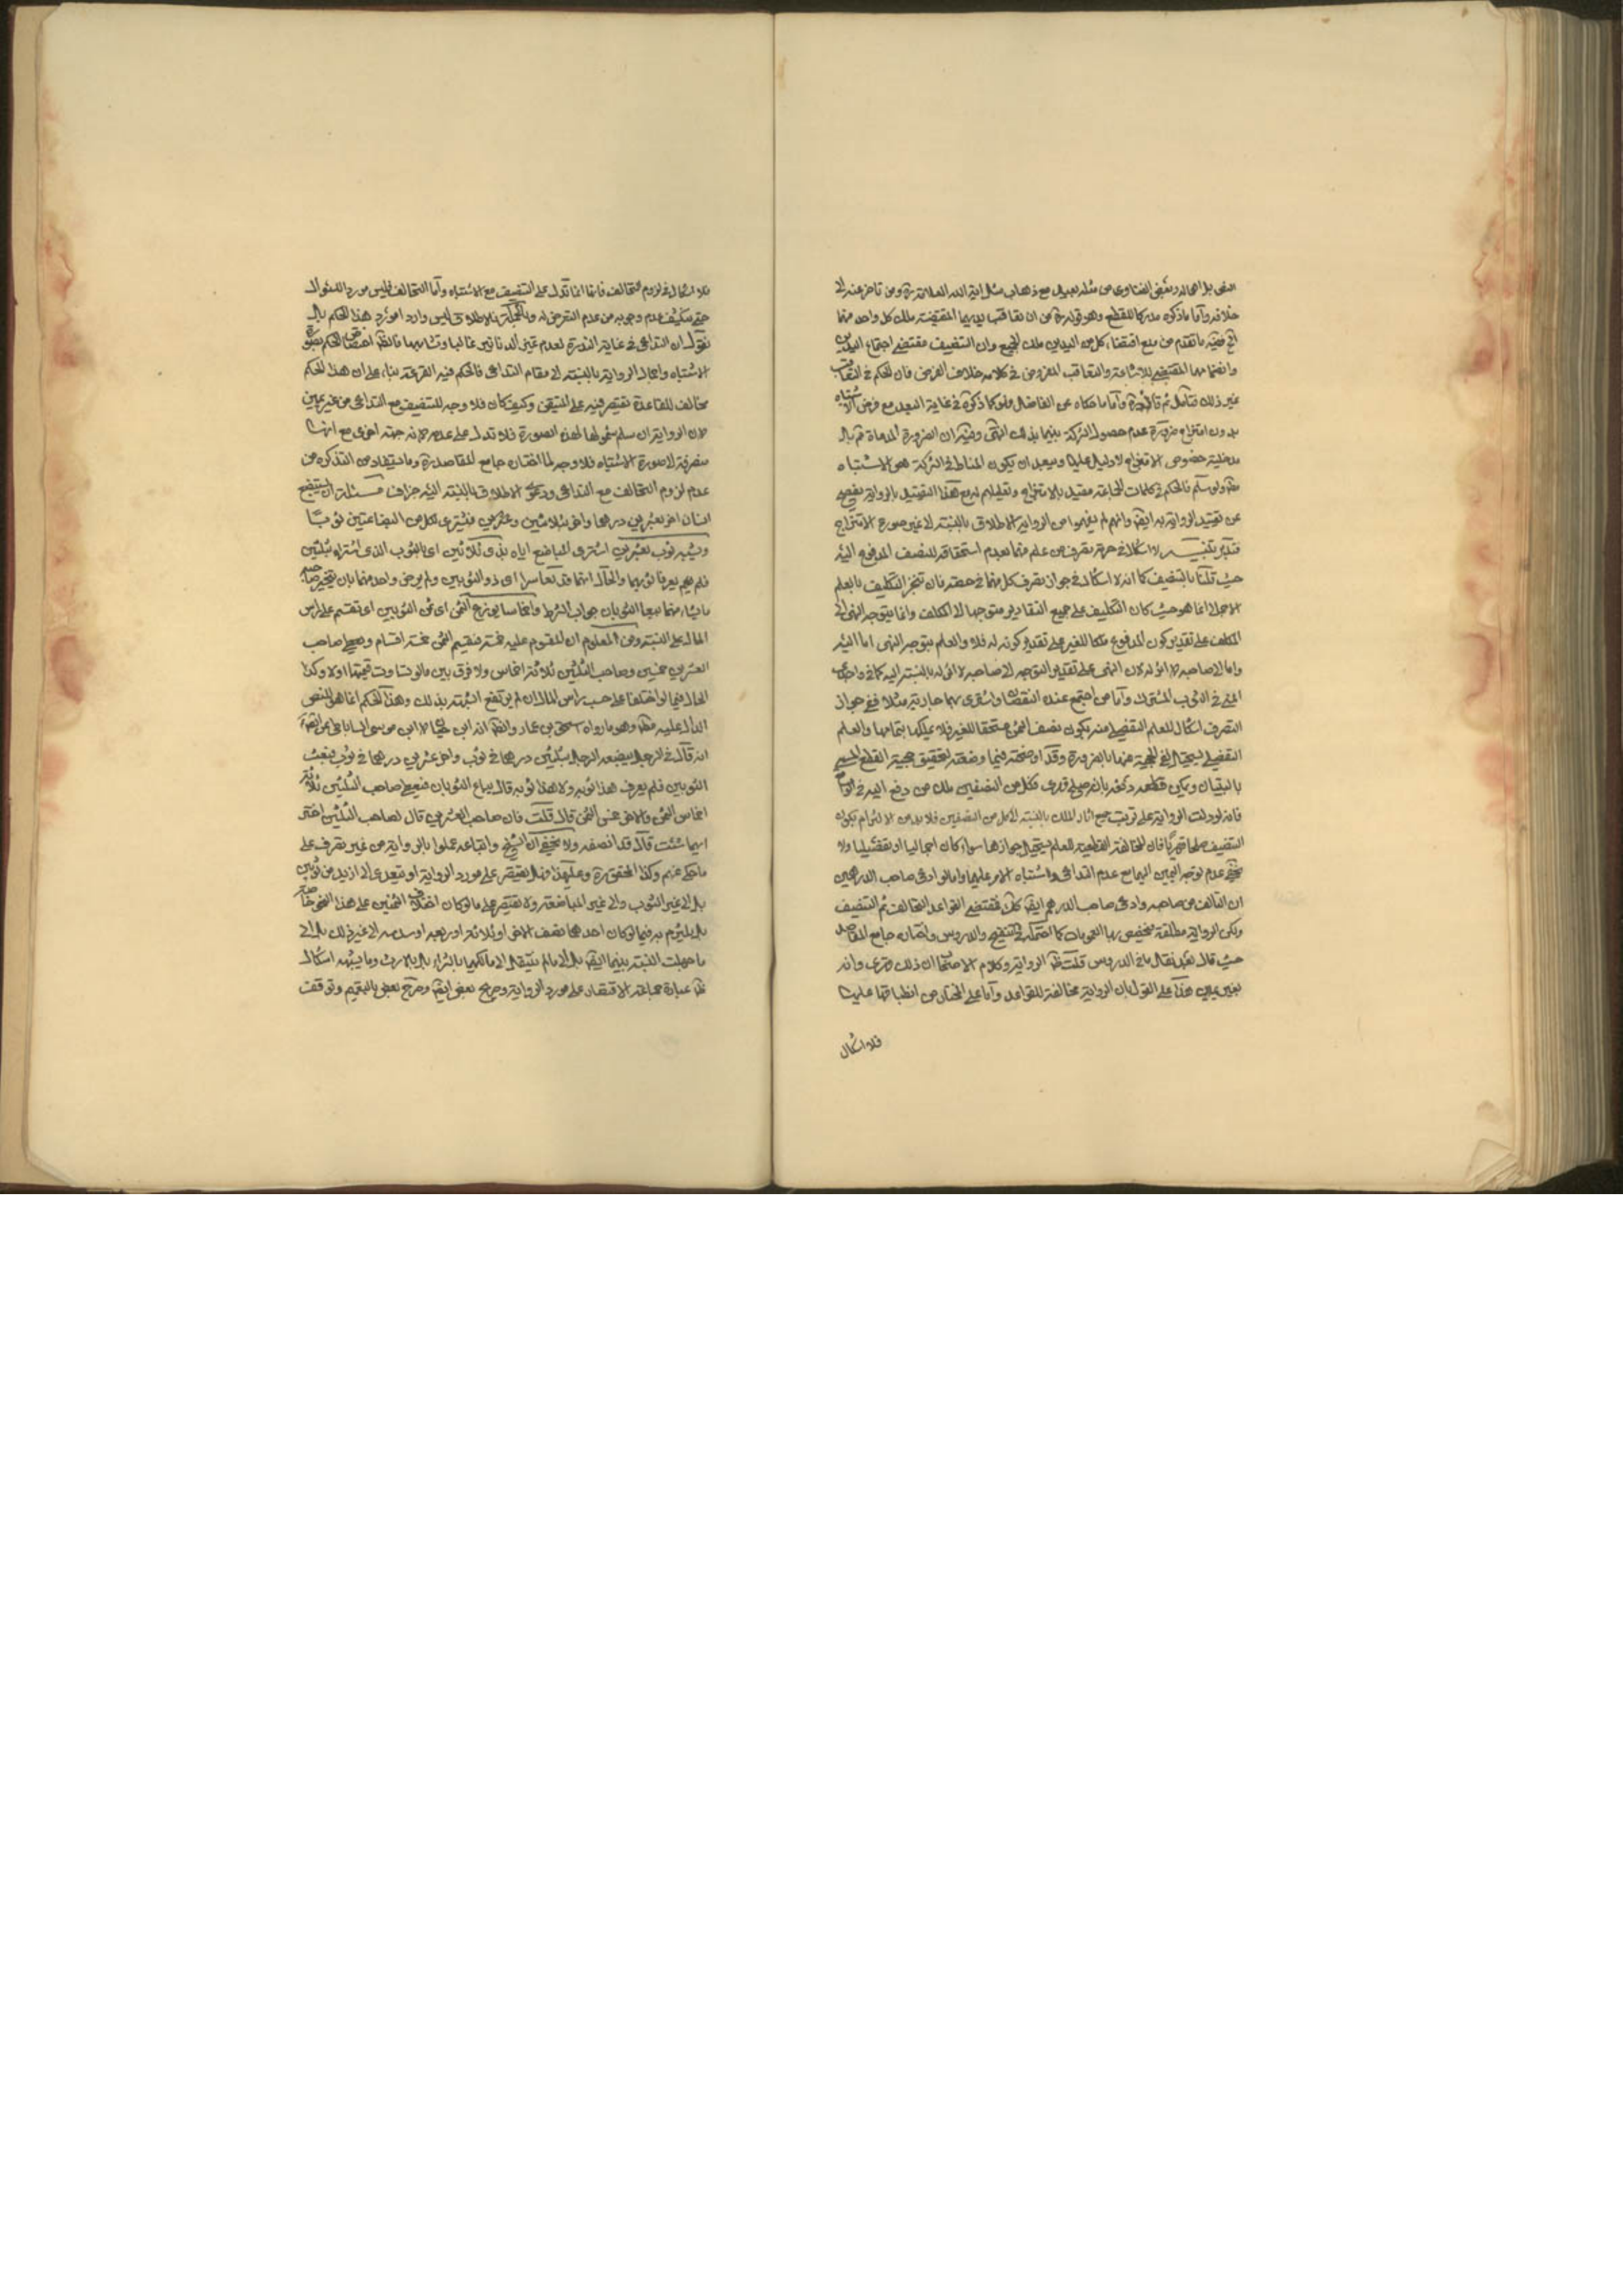 النص بل اهماله وبعض الفتاوى من مثله بعيد مع ذهاب مثل اية الله العلامة ره ومن تاخر عنه الى
خلافه وأما ما ذكره مدركا للقطع وهو قوله ره من ان تعاقب يديهما المقتضية ملك كل واحد منهما
ففيه ما تقدم من منع اقتضاء كل من اليدين ملك الجميع وان التنصيف مقتضى اجتماع اليدين
وانضمامهما المقتضى للاشاعة والتعاقب المفروض في كلامه خلاف الفرض فان الحكم في التعاقب
غير ذلك فتأمل ثم قال ره وأما ما حكاه عن الفاضل فهو كما ذكره في غاية البعد مع فرض الاشتباه
بدون امتزاج ضرورة عدم حصول الشركة بينهما بذلك انتهى وفيه ان الضرورة المدعاة ثم بل
مدخلية خصوص الامتزاج لا دليل عليها ويبعد ان يكون المناط في الشركة هو الاشتباه
ولو سلم فالحكم في كلمات الجماعة مقيد بالامتزاج وتعليلهم له مع هذا التقييد بالرواية يفصح
عن تقييد الرواية به ايضا وانهم لم يفهموا من الرواية الاطلاق بالنسبة الى غير صورة الامتزاج
فتدبر تنبيه لا اشكال في حرمة تصرف من علم منهما بعدم استحقاقه للنصف المدفوع اليه
حيث قلنا بالتنصيف كما انه لا اشكال في جواز تصرف كل منهما في حصته فان تنجز التكليف بالعلم
الاجمالي انما هو حيث كان التكليف على جميع التقادير متوجها الى المكلف وانما يتوجه النهي الى
المكلف على تقدير كون المدفوع ملكا للغير على تقدير كونه له فلا والعلم بتوجه النهي اما اليه
واما الى صاحبه لا اثر له لان النهي على تقدير التوجه الى صاحبه لا اثر له بالنسبة اليه كما في واجدي
المني في الثوب المشترك وأما من اجتمع عنده النصفان واشترى بهما جارية مثلا ففي جواز
التصرف اشكال للعلم التفصيلي منه بكون نصف الثمن مستحقا للغير فلا يملكها بتمامها والعلم
التفصيلي يستحيل الغاء الحجية عنها بالضرورة وقد اوضحته فيما وضعته لتحقيق حجية القطع
فانه لو دلت الرواية على ترتب جميع اثار الملك بالنسبة الى كل من النصفين فلا بد من الالتزام بكون
التنصيف صلحا قهريا فان المخالفة القطعية للعلم يستحيل جوازها سواء كان اجماليا او تفصيليا ولا
يخفى عدم توجه اليمين اليهما مع عدم التداعي واشتباه الامر عليهما واما لو ادعى صاحب الدرهمين
ان التالف من صاحبه وادعى صاحب الدرهم ايضا كذلك فمقتضى القواعد التحالف ثم التنصيف
ولكن الرواية مطلقة فتخصيص بها العمومات كما احتمله في التنقيح والدروس واختاره جامع المقاصد
حيث قال بعد نقل ما في الدروس قلت ظاهر الرواية وكلام الاصحاب ان ذلك وانه
بغير يمين هذا على القول بان الرواية مخالفة للقواعد وأما على المختار من انطباقها عليها
فلا اشكال
فلا اشكال في لزوم التحالف فانها انما تدل على التنصيف مع الاشتباه وأما التحالف فليس مورد السؤال
حتى يستكشف عدم وجوبه من عدم التعرض له وبالجملة فالاطلاق ليس واردا مورد هذا الحكم بل
نقول ان التداعي في غاية الندرة لعدم تميز الدنانير غالبا وتشابهها فالظاهر اختصاص الحكم بصورة
الاشتباه واجمال الرواية بالنسبة الى مقام التداعي فالحكم فيه القرعة بناء على ان هذا الحكم
مخالف للقاعدة نقتصر فيه على المتيقن وكيف كان فلا وجه للتنصيف مع التداعي من غير يمين
لان الرواية ان سلم شمولها لهذه الصورة فلا تدل على عدمه لانه جهة اخرى مع انها
منصرفة الى صورة الاشتباه فلا وجه لما اختاره جامع المقاصد ره وما يستفاد من التذكرة من
عدم لزوم التحالف مع التداعي ودعوى الاطلاق بالنسبة اليه جزاف مسئلة ان استبضع
انسان اخر بعشرين درهما واخر بثلاثين وعشرين فيشترى لكل من البضاعتين ثوبا
ويشبه ثوب بعشرين اشترى المباضع اياه بذي ثلاثين اي بالثوب الذي اشتراه بثلثين
فلم يعرفا ثوبهما والحال انهما قد تعاسرا اي ذو الثوبين ولم يرض واحد منهما بان يتخير صاحبه
ما يشاء منهما بيعا الثوبان جواب الشرط وانما سامي يوزع الثمن اي ثمن الثوبين اي تقسم على راس
المال على النسبة ومن المعلوم ان المقسوم عليه خمسة فيقسم الثمن خمسة اقسام ويعطى صاحب
العشرين خمسين وصاحب الثلثين ثلاثة اخماس ولا فرق بين ما لو تفاوت قيمتهما اولا وكذا
الحال فيما لو اختلفا على حسب راس المال ان لم يرتفع الشبهة بذلك وهذا الحكم انما هو للنص
الدال عليه وهو ما رواه اسحق بن عمار والظاهر انه ابن حيان لا ابن موسى الساباطي عن الصادق
انه قال في الرجل يبضعه الرجل بثلثين درهما في ثوب واخر عشرين درهما في ثوب فبعث
الثوبين فلم يعرف هذا ثوبه ولا هذا ثوبه قال يباع الثوبان فيعطى صاحب الثلثين ثلاثة
اخماس الثمن والاخر خمسي الثمن قال قلت فان صاحب العشرين قال لصاحب الثلثين اختر
ايهما شئت قال قد انصفه ولا يخفى ان الشيخ واتباعه عملوا بالرواية من غير تصرف على
ما حكي عنهم وكذا المحقق ره وعليه فهل يقتصر على مورد الرواية او يتعدى الى ازيد من ثوبين
بل الى غير الثوب والى غير المباضعة ولا يقتصر على ما لو كان اختلاف الثمنين على هذا النحو خاصة
بل يلتزم به فيما لو كان احدهما نصف الاخر او ثلاثة او ربعه او سدسه الى غير ذلك بل الى
ما جهلت النسبة بينهما ايضا بل الى ما لم ينتقل الى مالكهما بالشراء بل بالارث وما يشبهه اشكال
ظاهر عبارة جماعة الاقتصار على مورد الرواية وصريح بعض ايضا وصرح بعض بالتعميم وتوقف